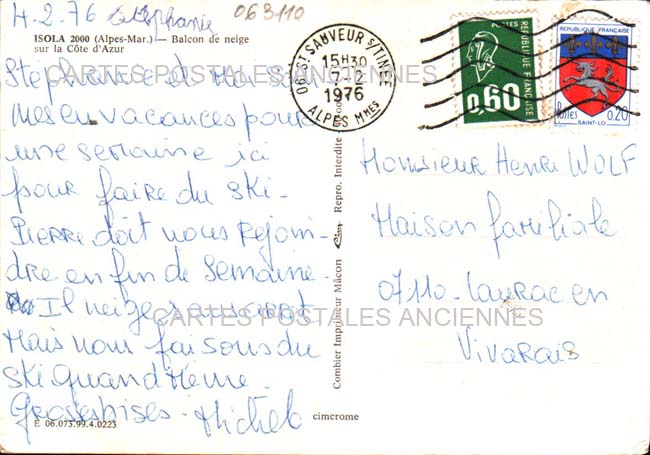 4-2-76 Stéphanie
063110
ISOLA 2000 (Alpes-Mar.) — Balcon de neige
sur la Côte d'Azur
Stéphanie et moi som
mes en vacances pour
une semaine ici
pour faire du ski-
PIERRE doit nous rejoin-
dre en fin de semaine-
Il neige sans arrêt
Mais nous faisons du
ski quand même-
Grosses bises- Michel
E 06.073.99.4.0223
cimcrome
Combier Imprimeur Mâcon Cim Repro. Interdite
06 ST SAUVEUR S/TINEE
15H30
7-2
1976
ALPES MMES
POSTES
REPUBLIQUE FRANÇAISE
0,60
REPUBLIQUE FRANÇAISE
POSTES
0,20
SAINT-LO
Monsieur Henri WOLF
Maison familiale
07110-Laurac en
Vivarais
CARTES POSTALES ANCIENNES
CARTES POSTALES ANCIENNES